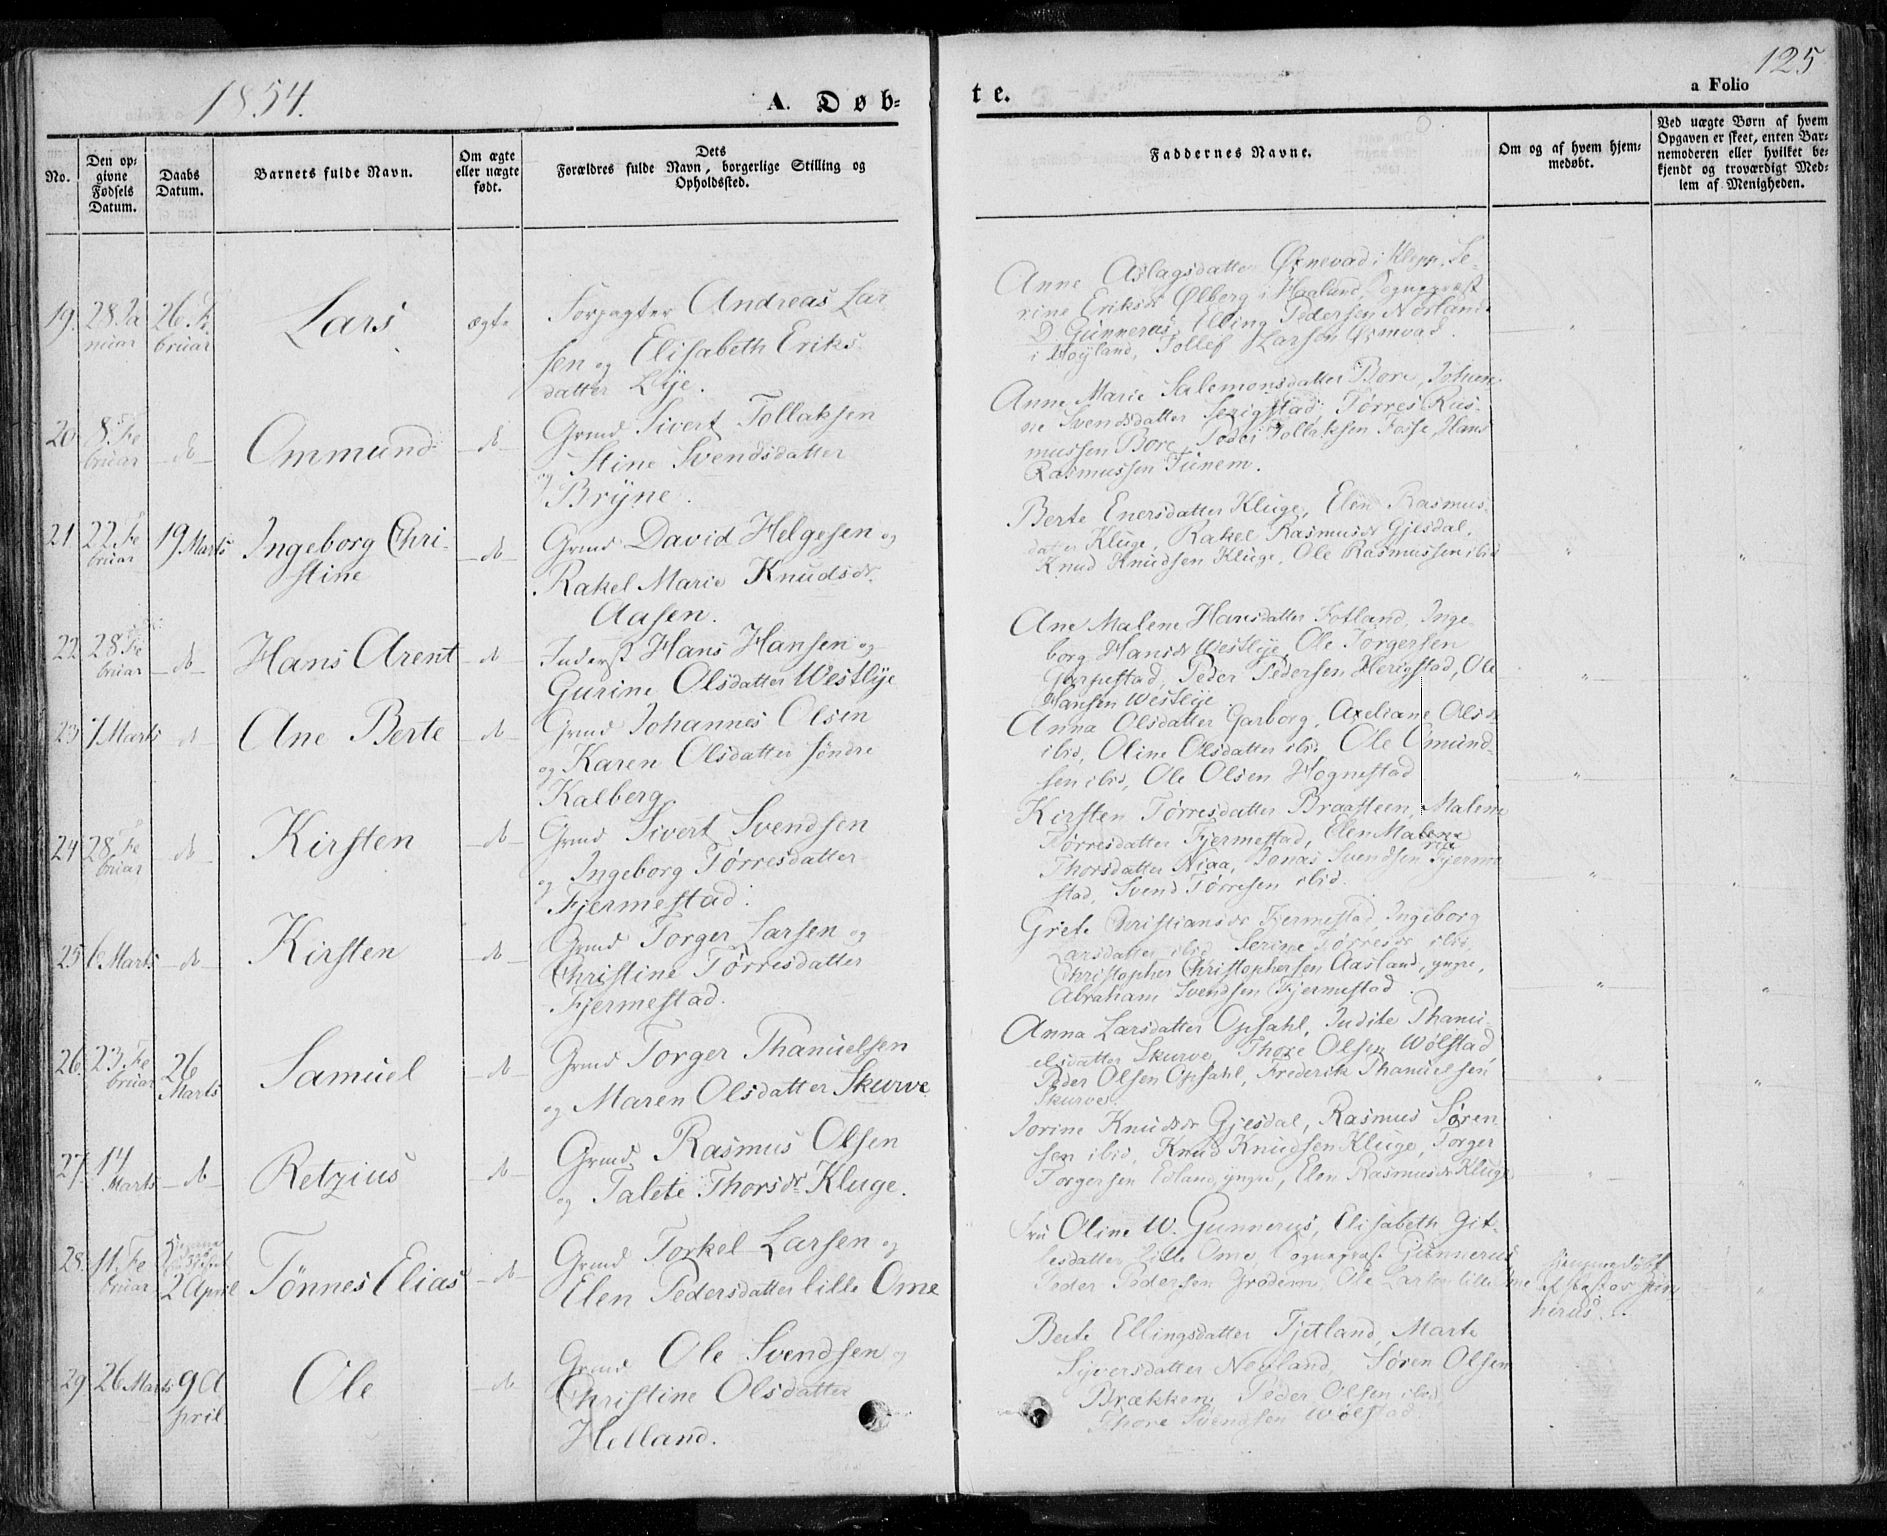 1854.
A. Døb-
te.
125
a Folio
No.
Den op-
givne
Fødsels
Datum.
Daabs
Datum.
Barnets fulde Navn.
Om ægte
eller uægte
født.
Dets
Forældres fulde Navn, borgerlige Stilling og
Opholdssted.
Faddernes Navne.
Om og af hvem hjem-
medøbt.
Ved uægte Børn af hvem
Opgaven er skeet, enten Bar-
nemoderen eller hvilket be-
kjendt og troværdigt Med-
lem af Menigheden.
19. 28 Ja
nuar
26 Fe
bruar
Lars
ægte
Forpagter Andreas Lar
sen og Elisabeth Eriks
datter Lÿe.
Anne Aslagsdatter Øxnevad i Klepp, Se-
rine Eriksdr Ølberg i Haaland, Sognepræst
D Gunnerus, Elling Pedersen Norland
i Høyland, Tollef Larsen Øxnevad.
20 8 Fe
bruar
do
Ommund
do
Grmd Sivert Tollaksen
og Stine Svendsdatter
Brÿne.
Anne Marie Salemonsdatter Bore, Johan
ne Svendsdatter Serigstad, Tørres Ras-
mussen Bore, Peder Tollaksen Fosse, Hans
Rasmussen Tunem.
21. 22 Fe
bruar
19 Marts
Ingeborg Chri-
stine
do
Grmd David Helgesen og
Rakel Marie Knudsdr
Aasen.
Berte Enersdatter Kluge, Elen Rasmus-
datter Kluge, Rakel Rasmusdr Gjesdal,
Knud Knudsen Kluge, Ole Rasmussen ibid
22 28 Fe
bruar
do
Hans Arent
do
Inderst Hans Hansen og
Gurine Olsdatter Westlÿe
Ane Malene Hansdatter Fotland, Inge-
borg Hansdr Westlÿe, Ole Torgersen
Peder Pedersen Herigstad, Ole
Hansen Westlÿe.
23 7 Marts
do
Ane Berte
do
Grmd Johannes Olsen
og Karen Olsdatter søndre
Kalberg.
Anna Olsdatter Garborg, Axeliane Olsdr
ibid, Oline Olsdatter ibid, Ole Omund
sen ibid, Ole Olsen Hognestad
24 28 Fe
bruar
do
Kirsten
do
Grmd Sivert Svendsen
og Ingeborg Tørresdatter
Fjermestad.
Kirsten Tørresdatter Braasteen, Malene
Tørresdatter Fjermestad, Elen Malene
Thorsdatter Njaa, Jonas Svendsen Fjerme
stad, Svend Tørresen ibid.
25 6 Marts
do
Kirsten
do
Grmd Torger Larsen og
Christine Tørresdatter
Fjermestad.
Grete Christiansdr Fjermestad, Ingeborg
Larsdatter ibid, Serine Tørresdr ibid,
Christopher Christophersen Aasland, yngre,
Abraham Svendsen Fjermestad.
26. 23 Fe
bruar
26
Marts
Samuel
do
Grmd Torger Thanuelsen
og Maren Olsdatter Skurve
Anna Larsdatter Opsahl, Judite Thanu-
elsdatter Skurve, Thore Olsen Wølstad
Peder Olsen Opsahl, Frederik Thanuelsen
Skurve.
27. 14
Marts
do
Retzius
do
Grmd Rasmus Olsen
og Talete Thorsdr Kluge.
Jorine Knudsdr Gjesdal, Rasmus Søren
sen ibid, Knud Knudsen Kluge, Torger
Torgersen Edland, yngre, Elen Rasmusdr Kluge
28. 11. Fe
bruar
2 April
Tønnes Elias
do
Grmd Torkel Larsen og
Elen Pedersdatter lille Ome
Fru Oline W. Gunnerus, Elisabeth Git-
lesdatter Lille Ome, Sognepræst Gunnerus
Peder Pedersen Grødem, Ole Larsen lille Ome
hjemmedøbt
af Pastor Gun
nerus.
29 26 Marts
9 A
pril
Ole
do
Grmd Ole Svendsen og
Christine Olsdatter
Helland.
Berte Ellingsdatter Tjetland, Marte
Syversdatter Neuland, Søren Olsen
Brække, Peder Olsen ibid,
Thore Svendsen Wølstad.